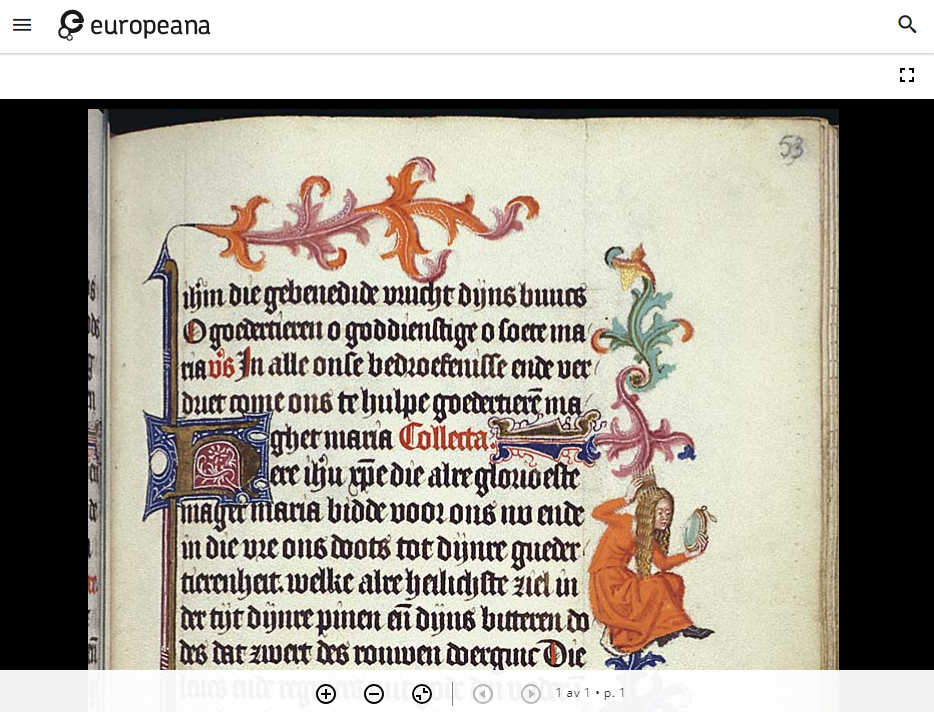 europeana
53
ih̄m die gebenedide vrucht dijns buucs
O goedertieren o goddienstige o soete ma
ria v̄s In alle onse bedroefenisse ende ver
driet come ons te hulpe goedertierē ma
ghet maria Collecta.
Here ihū xp̄e die alre glorioeste
maget maria bidde voor ons nu ende
in die vre ons doots tot dijnre gueder
tierenheit. welke alre heilichste ziel in
der tijt dijnre pinen eñ dijns bitteren do
des dat zwert des rouwen doerginc Die
1 av 1 • p. 1